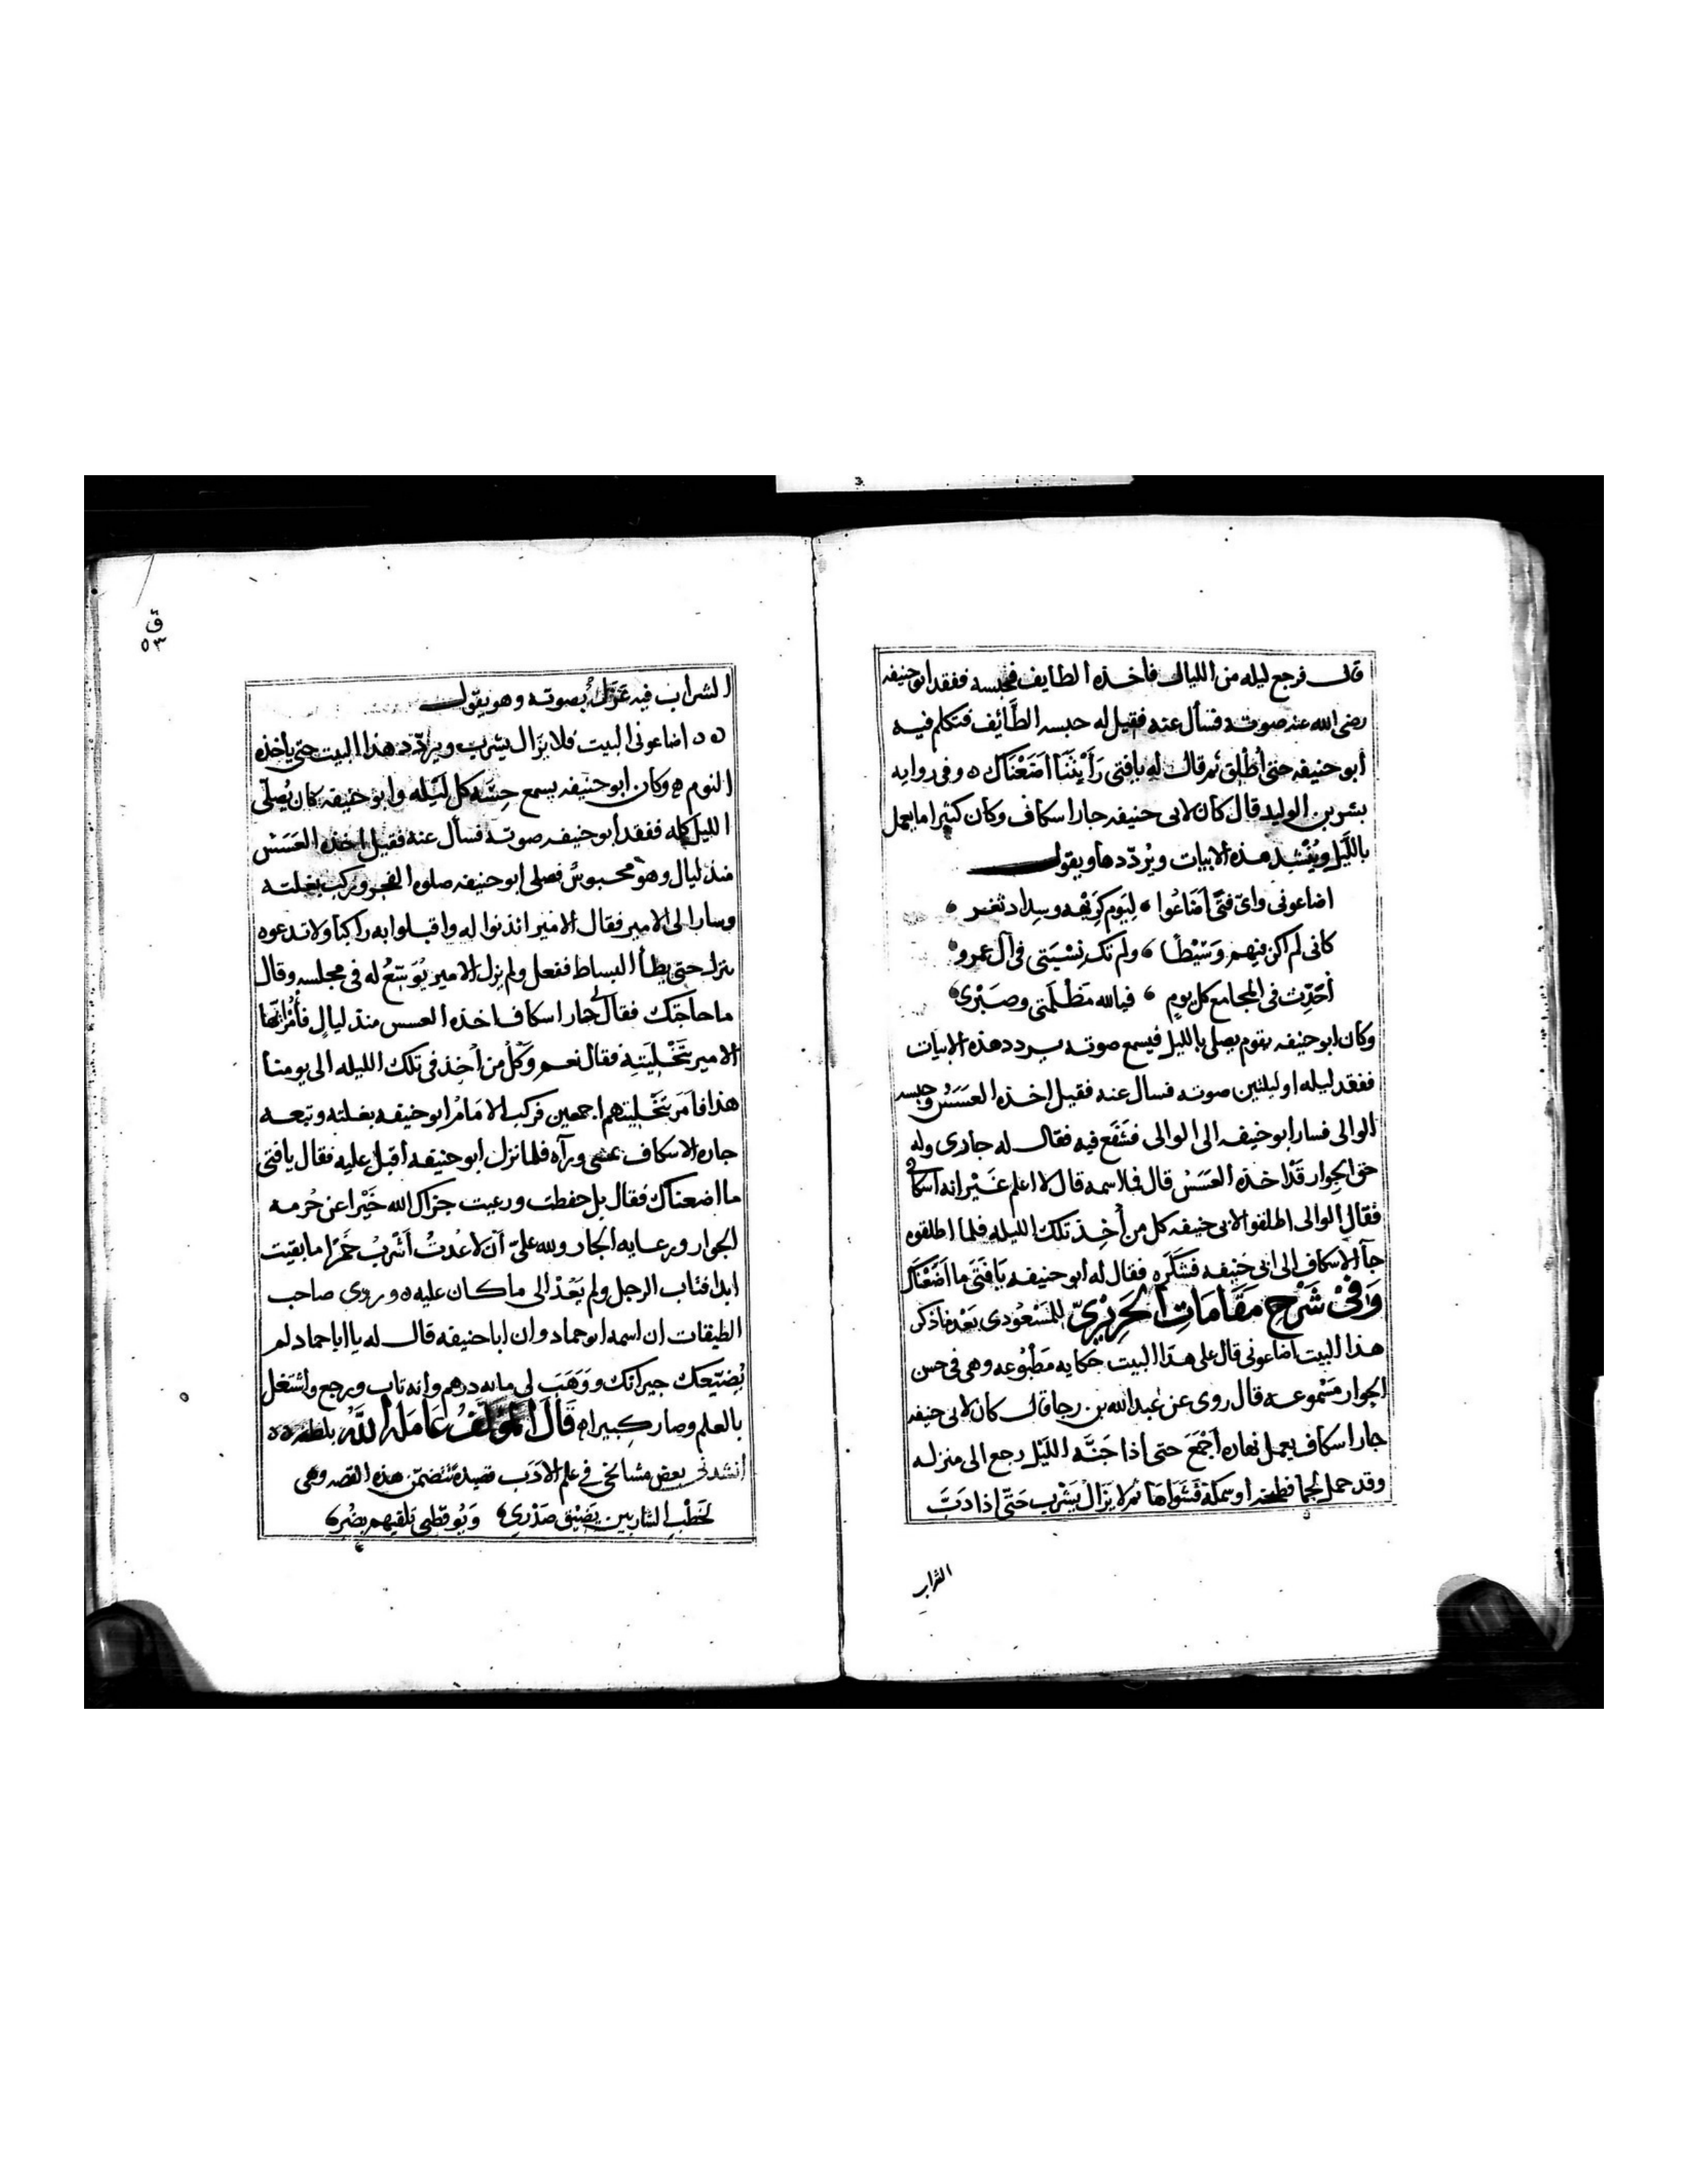 قال فرجع ليله من الليالى فاخذه الطايف فحبسه ففقد ابو حنيفه
رضى الله عنه صوته فسأل عنه فقيل له حبسه الطَّائِف فتكلم فيه
أبو حنيفه حتى أُطلق ثم قال له يافتى رَأَيْتَنَا اضَعْنَاك ه وفى روايه
بشر بن الوليد قال كان لابى حنيفه جار اسكاف وكان كثيرا ما يعمل
بالليل ويُنْشِد هذه الابيات ويُردّدها ويقول
اضاعونى واى فتًى أضَاعُوا ، لِيَوم كَرِيْهه وسِداد ثغر ،
كانى لم اكن فيهم وَسَيْطًا ، ولم تك نِسْبَتى فى آل عمرو
اُجَرّر فى المجامع كل يوم ، فيالله مَظْلَمَتى وصَبْرى
وكان ابو حنيفه يقوم يصلى بالليل فيسمع صوته يردد هذه الابيات
ففقد ليله او ليلتين صوته فسال عنه فقيل اخذه العَسَسُ وحبسه
الوالى فسار ابو حنيفه الى الوالى فشَفَع فيه فقال له جارى وله
حق الجوار قَدْ اخذه العَسَسُ قال فما اسمه قال لا اعلم غَيْر انه اسكاف
فقال الوالى اطلقوا لابى حنيفه كل من أُخِذَ تلك الليله فلما اطلقوه
جآ الاسكاف الى ابى حَنيفه فشَكَره فقال له ابو حنيفه يَا فَتَى ما اضَعْنَاك
وَفىْ شَرْحِ مَقَامَاتِ الْحَرِيْرِيّ للمَسْعُودى بَعْد ما ذكر
هذا البيت اضاعونى قال على هذا البيت حكايه مَطْبُوعه وهى فى حسن
الجوار مَسْموعه قال روى عن عبد الله بن رجا قال كان لابى حنيفه
جار اسكاف يعمل نهاره أَجْمَعَ حتى اذا جَنَّه اللَيْل رجع الى منزله
وقد حمل لحما فطبخه او سمكة فشَوَاهَا ثم لا يَزَالُ يَشْرِب حَتّى اذا دَبَّ
الشراب
ق
٥٣
الشراب فيه غَزَلَ بصوته وهو يقول
ه ه اضاعونى البيت فلا يزَال يشرب ويردّد هذا البيت حتى ياخذه
النوم ه وكان ابو حَنيفه يسمع حِسَّه كل لَيْله وابو حنيفه كان يُصلّى
الليل كله ففقد ابو حنيفه صوته فسأل عنه فقيل اخذه العَسَسْ
منذ ليال وهو محبوسٌ فصلى ابو حنيفه صلوه الفجر وركب بغلته
وسار الى الامير فقال الامير ائذنوا له واقبلوا به راكبًا ولا تدعوه
ينزل حتى يطأ البساط ففعل ولم يزل الامير يُوَسّعُ له فى مجلسه وقال
ما حاجَتك فقال لى جار اسكاف اخذه العسس منذ ليالٍ فأمُر ايُّها
الامير بتَخْلِيَتِه فقال نعم وَكُلُّ من اُخِذ فى تلك الليله الى يومنا
هذا فاَمَر بتَخْلِيتهم اجمعين فركب الامَامُ ابو حنيفه بغلته وتبعه
جاره الاسكاف يمشى ورآه فلما نزل ابو حنيفه أقبل عليه فقال يافتى
ما اضعناك فقال بل حفظت ورعيت جزاك الله خَيْرا عن حُرمه
الجوار ورعايه الجار ولله علىّ أن لا عُدتُ أشرَبُ خمرًا ما بقيت
ابدا فتاب الرجل ولم يَعُد الى ما كان عليه ه وروى صاحب
الطبقات ان اسمه ابو حماد وان ابا حنيفه قال له يا ابا حماد لم
يُضَيّعك جيرانك ووَهَبَ لى مايه درهم وانه تاب ورجع واشتغل
بالعلم وصار كبيرا ه قَالَ الْمُؤَلّفُ عَامَلَهُ اللَّهُ بلطفه ه ه
انشدنى بعض مشائخى فى علم الادَب قصيدة تتضمّن هذه القصه وهى
لخَطْبِ الشاربين يَضيْق صَدْرى ، وَيُوقظنى تلقيهم بضُر